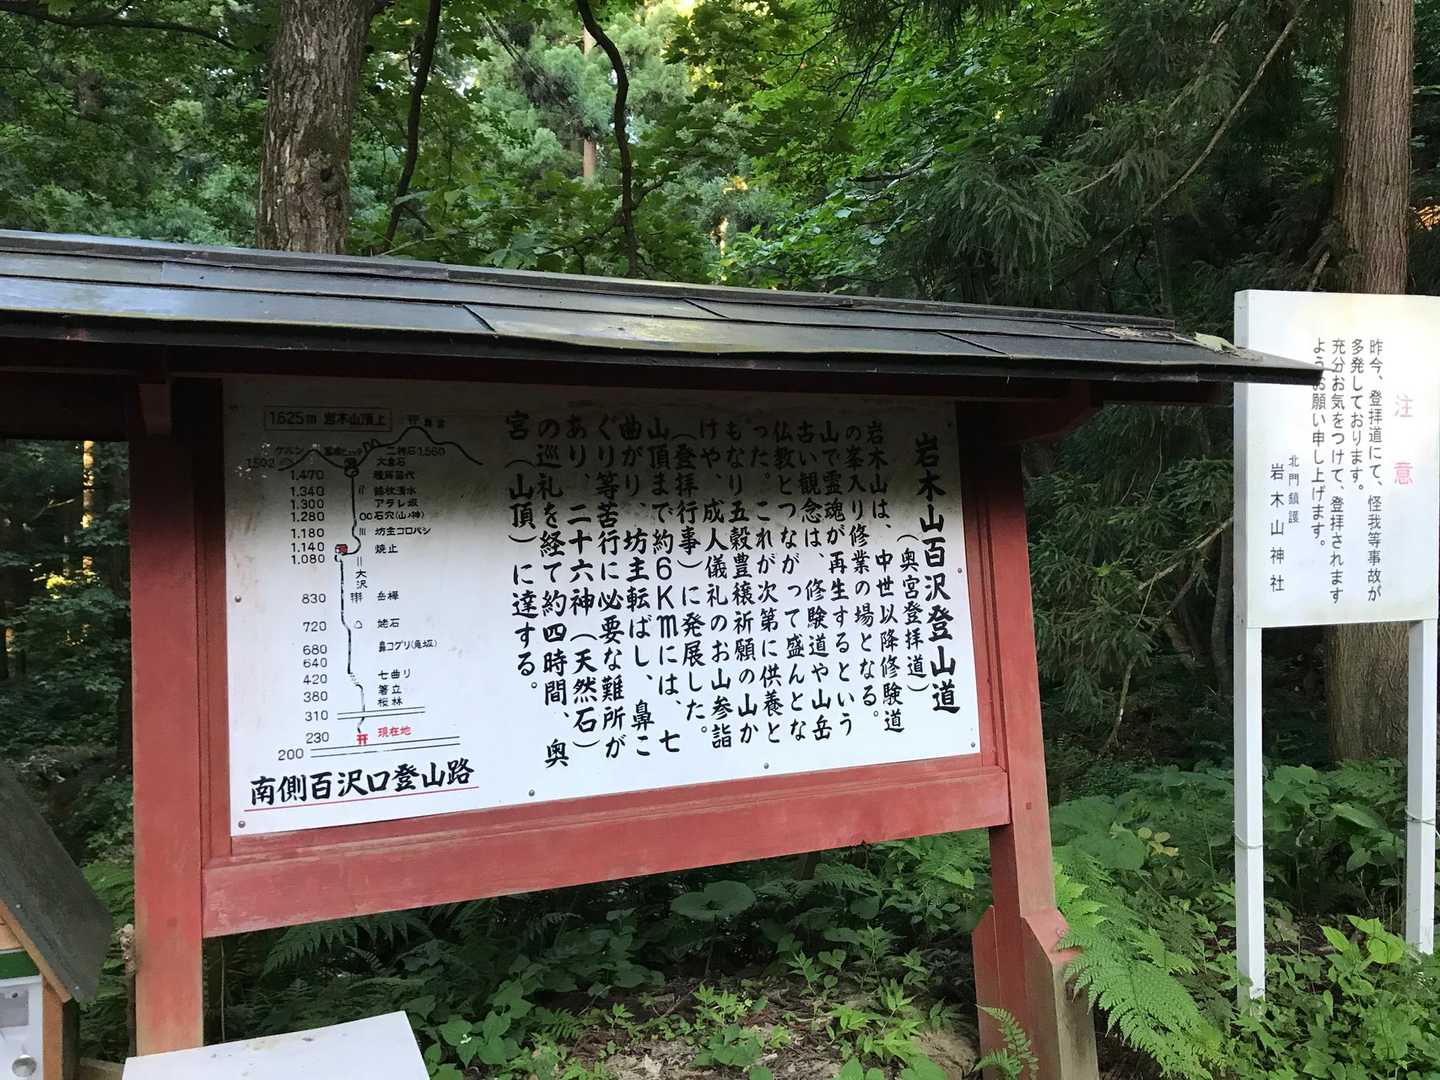 岩木山百沢登山道
(奥宮登拝道)
岩木山は、中世以降修験道
の峯入り修業の場となる。
山で霊魂が再生するという
古い観念は、修験道や山岳
仏教とつながって盛んとな
った。これが次第に供養と
もなり五穀豊穣祈願の山か
けや、成人儀礼のお山参詣
(登拝行事)に発展した。
山頂まで約6Kmには、七
曲がり、坊主転ばし、鼻こ
ぐり等苦行に必要な難所が
あり、二十六神(天然石)
の巡礼を経て約四時間、奥
宮(山頂)に達する。
1.625m 岩木山頂上
奥宮
二神石1.560
ケルン
1.502
大倉石
1.470 種蒔苗代
1.340 錫杖清水
1.300 アラレ坂
1.280 石穴(山ノ神)
1.180 坊主コロバシ
1.140 焼止
1.080
大沢
830 岳樺
720 姥石
680 鼻コグリ(鬼坂)
640
420 七曲り
380 箸立
桜林
310
230 現在地
200
南側百沢口登山路
注意
昨今、登拝道にて、怪我等事故が
多発しております。
充分お気をつけて、登拝されます
ようお願い申し上げます。
北門鎮護
岩木山神社